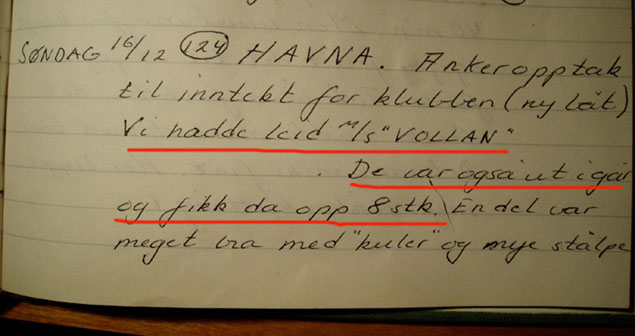 SØNDAG 16/12 (124) HAVNA. Ankeropptak
til inntekt for klubben (ny låt)
Vi hadde leid M/S "VOLLAN"
. De var også ut igår
og fikk da opp 8 stk. En del var
meget bra med "kuler" og mye stålpe